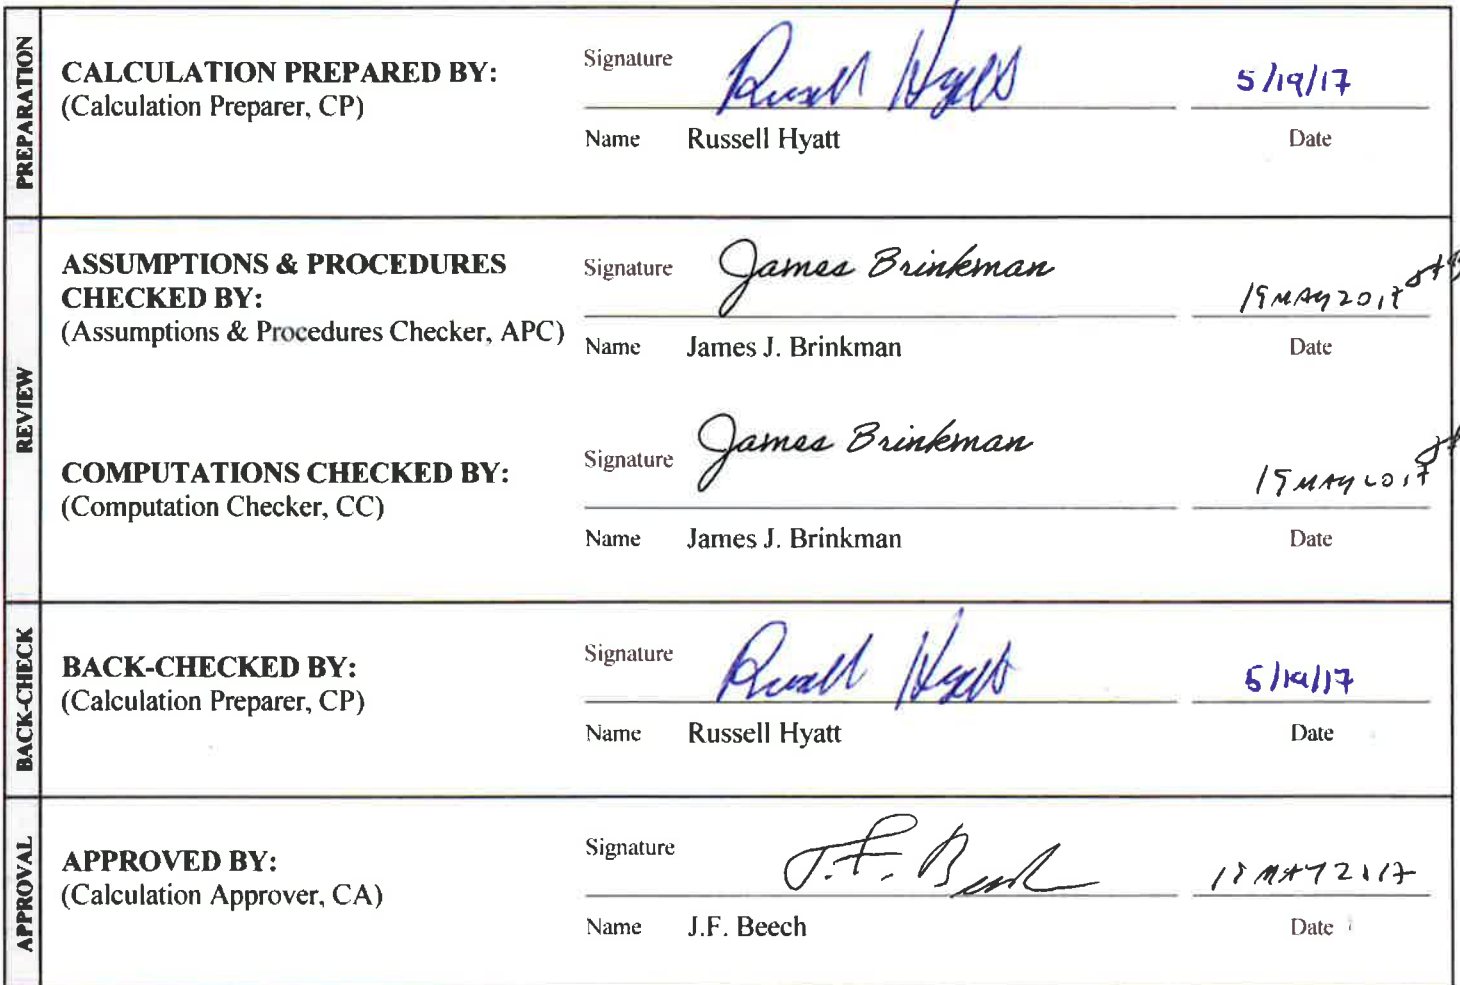 PREPARATION
CALCULATION PREPARED BY:
(Calculation Preparer, CP)
Signature Russell Hyatt 5/19/17
Name Russell Hyatt Date
REVIEW
ASSUMPTIONS & PROCEDURES
CHECKED BY:
(Assumptions & Procedures Checker, APC)
Signature James Brinkman 19 MAY 2017
Name James J. Brinkman Date
COMPUTATIONS CHECKED BY:
(Computation Checker, CC)
Signature James Brinkman 19 MAY 2017
Name James J. Brinkman Date
BACK-CHECK
BACK-CHECKED BY:
(Calculation Preparer, CP)
Signature Russell Hyatt 5/19/17
Name Russell Hyatt Date
APPROVAL
APPROVED BY:
(Calculation Approver, CA)
Signature J.F. Beech MAY 2017
Name J.F. Beech Date